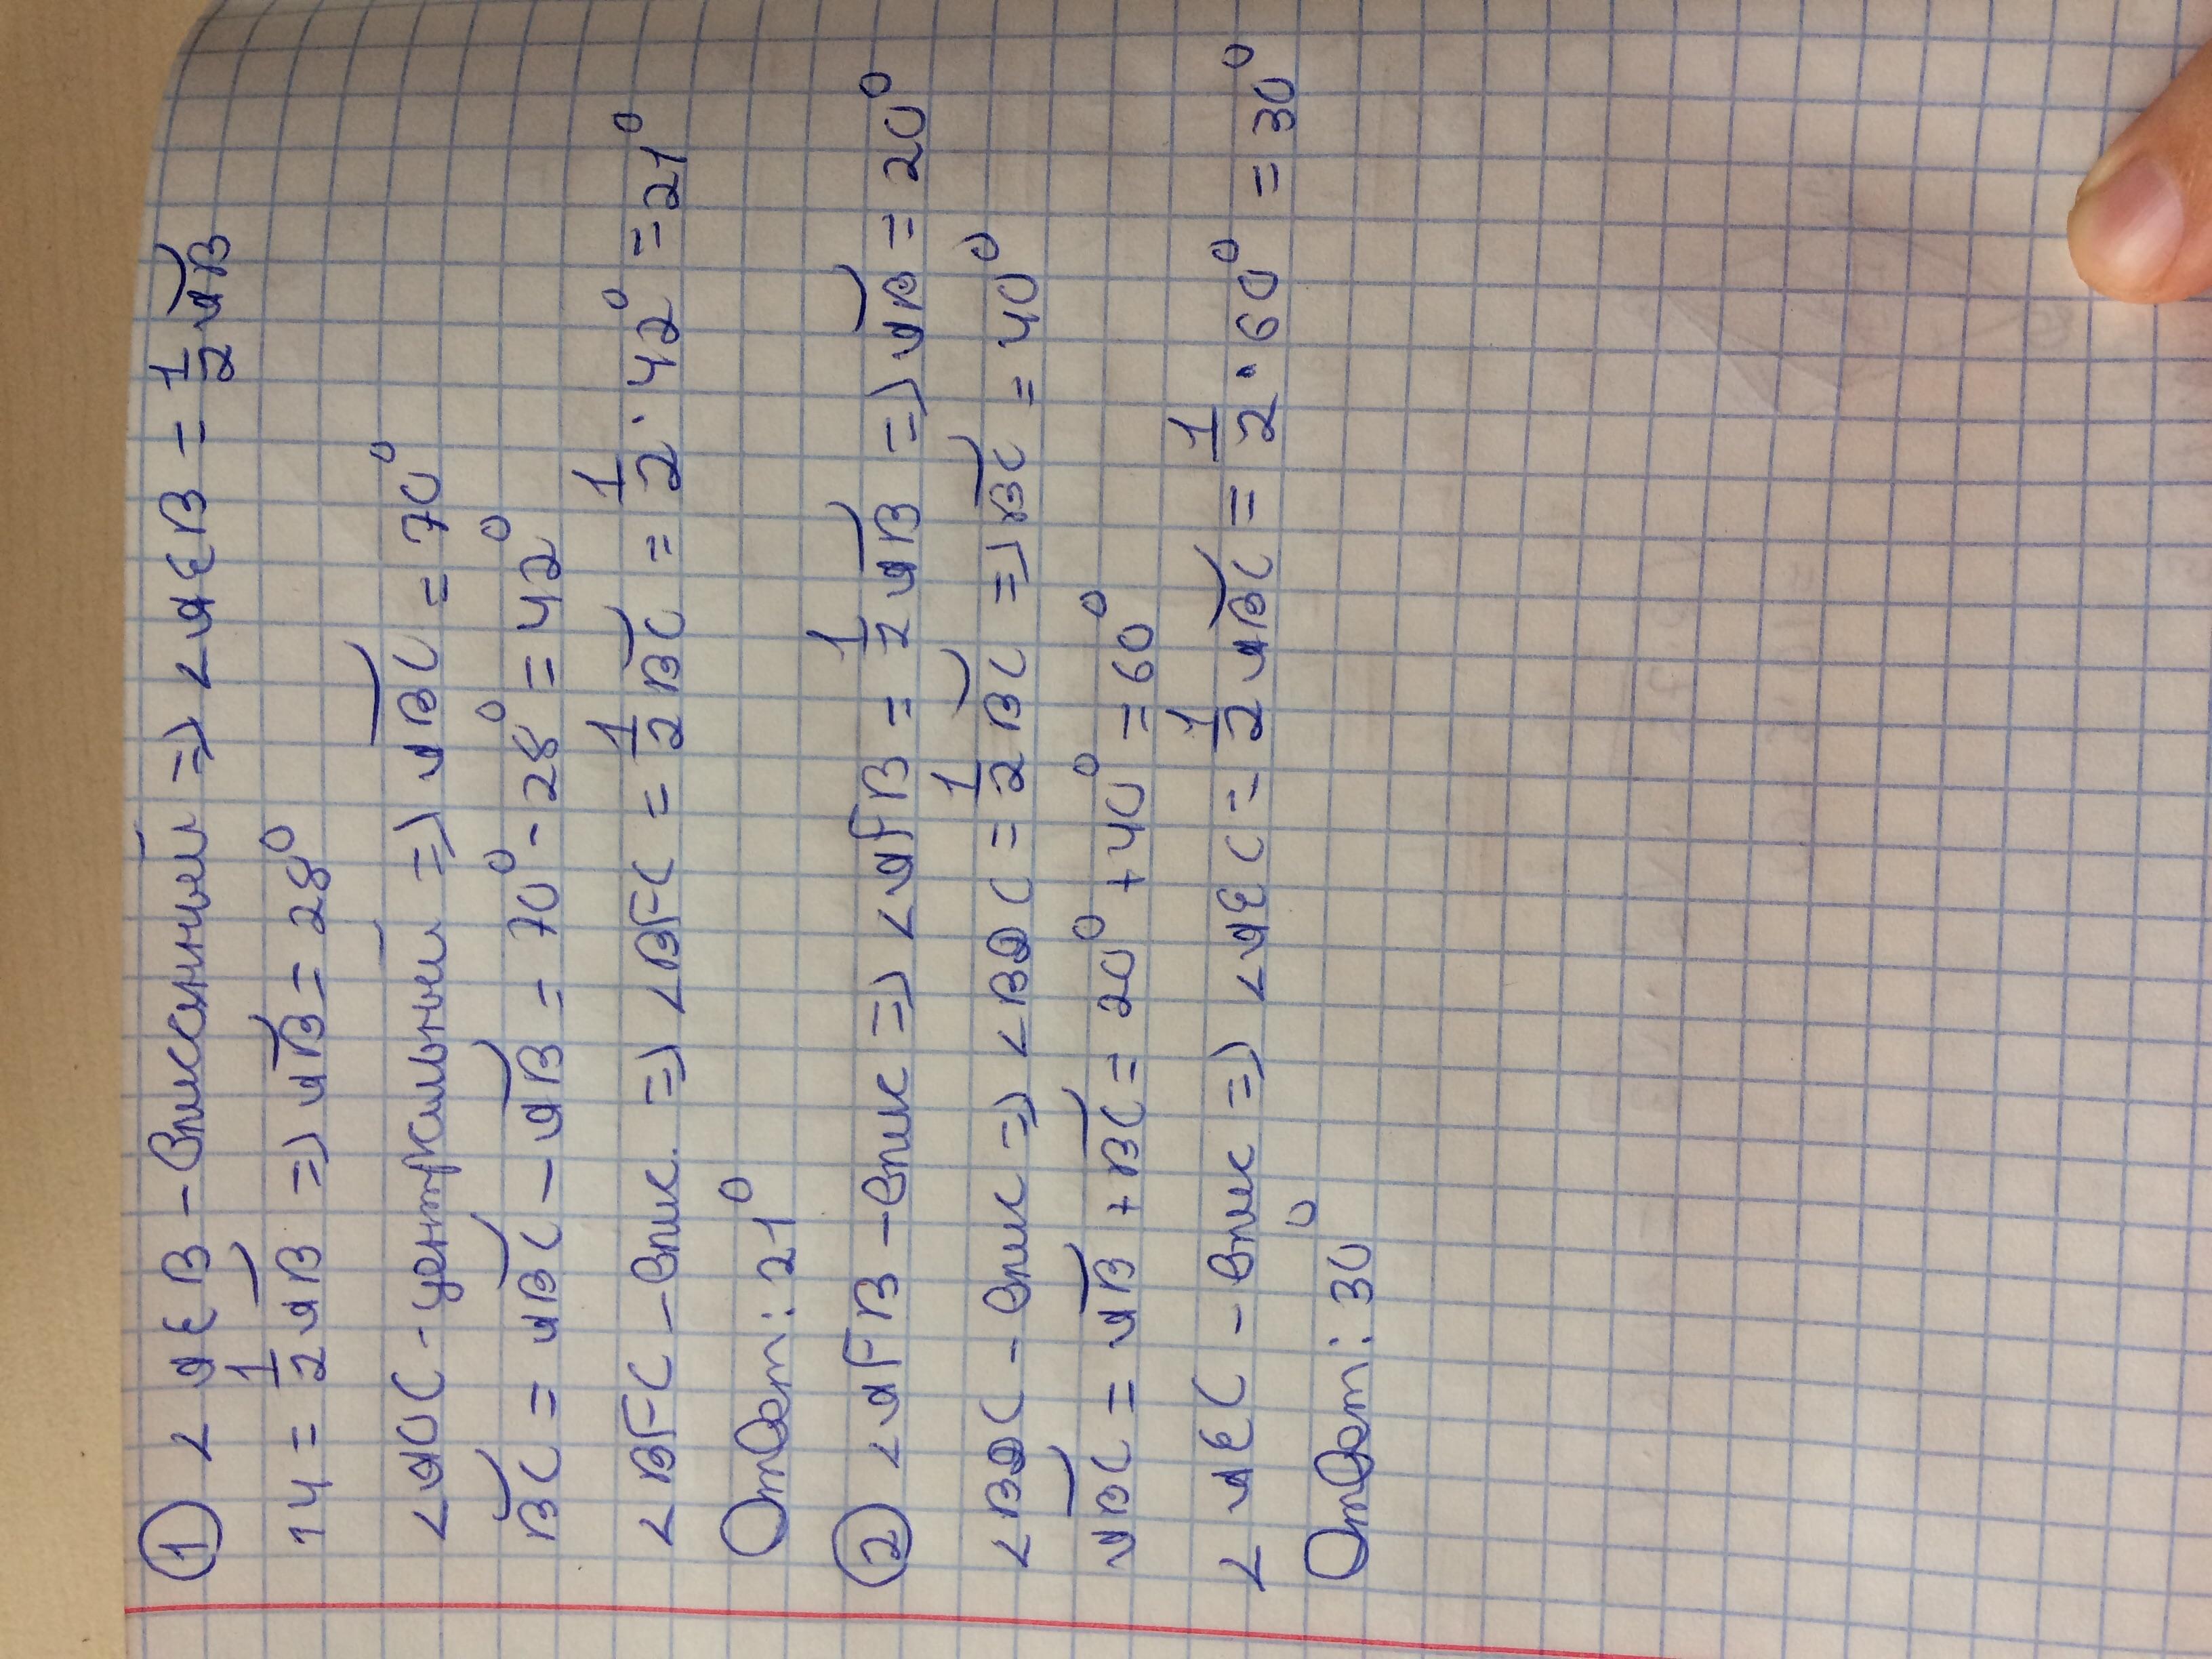 ① ∠AEB - вписанный => ∠AEB = 1/2 ◡AB
14 = 1/2 ◡AB => ◡AB = 28°
∠AOC - центральный => ◡ABC = 70°
◡BC = ◡ABC - ◡AB = 70° - 28° = 42°
∠BFC - впис. => ∠BFC = 1/2 ◡BC = 1/2 · 42° = 21°
Ответ: 21°
② ∠AFB - впис => ∠AFB = 1/2 ◡AB => ◡AB = 20°
∠BDC - впис => ∠BDC = 1/2 ◡BC => ◡BC = 40°
◡ABC = ◡AB + ◡BC = 20° + 40° = 60°
∠AEC - впис => ∠AEC = 1/2 ◡ABC = 1/2 · 60° = 30°
Ответ: 30°